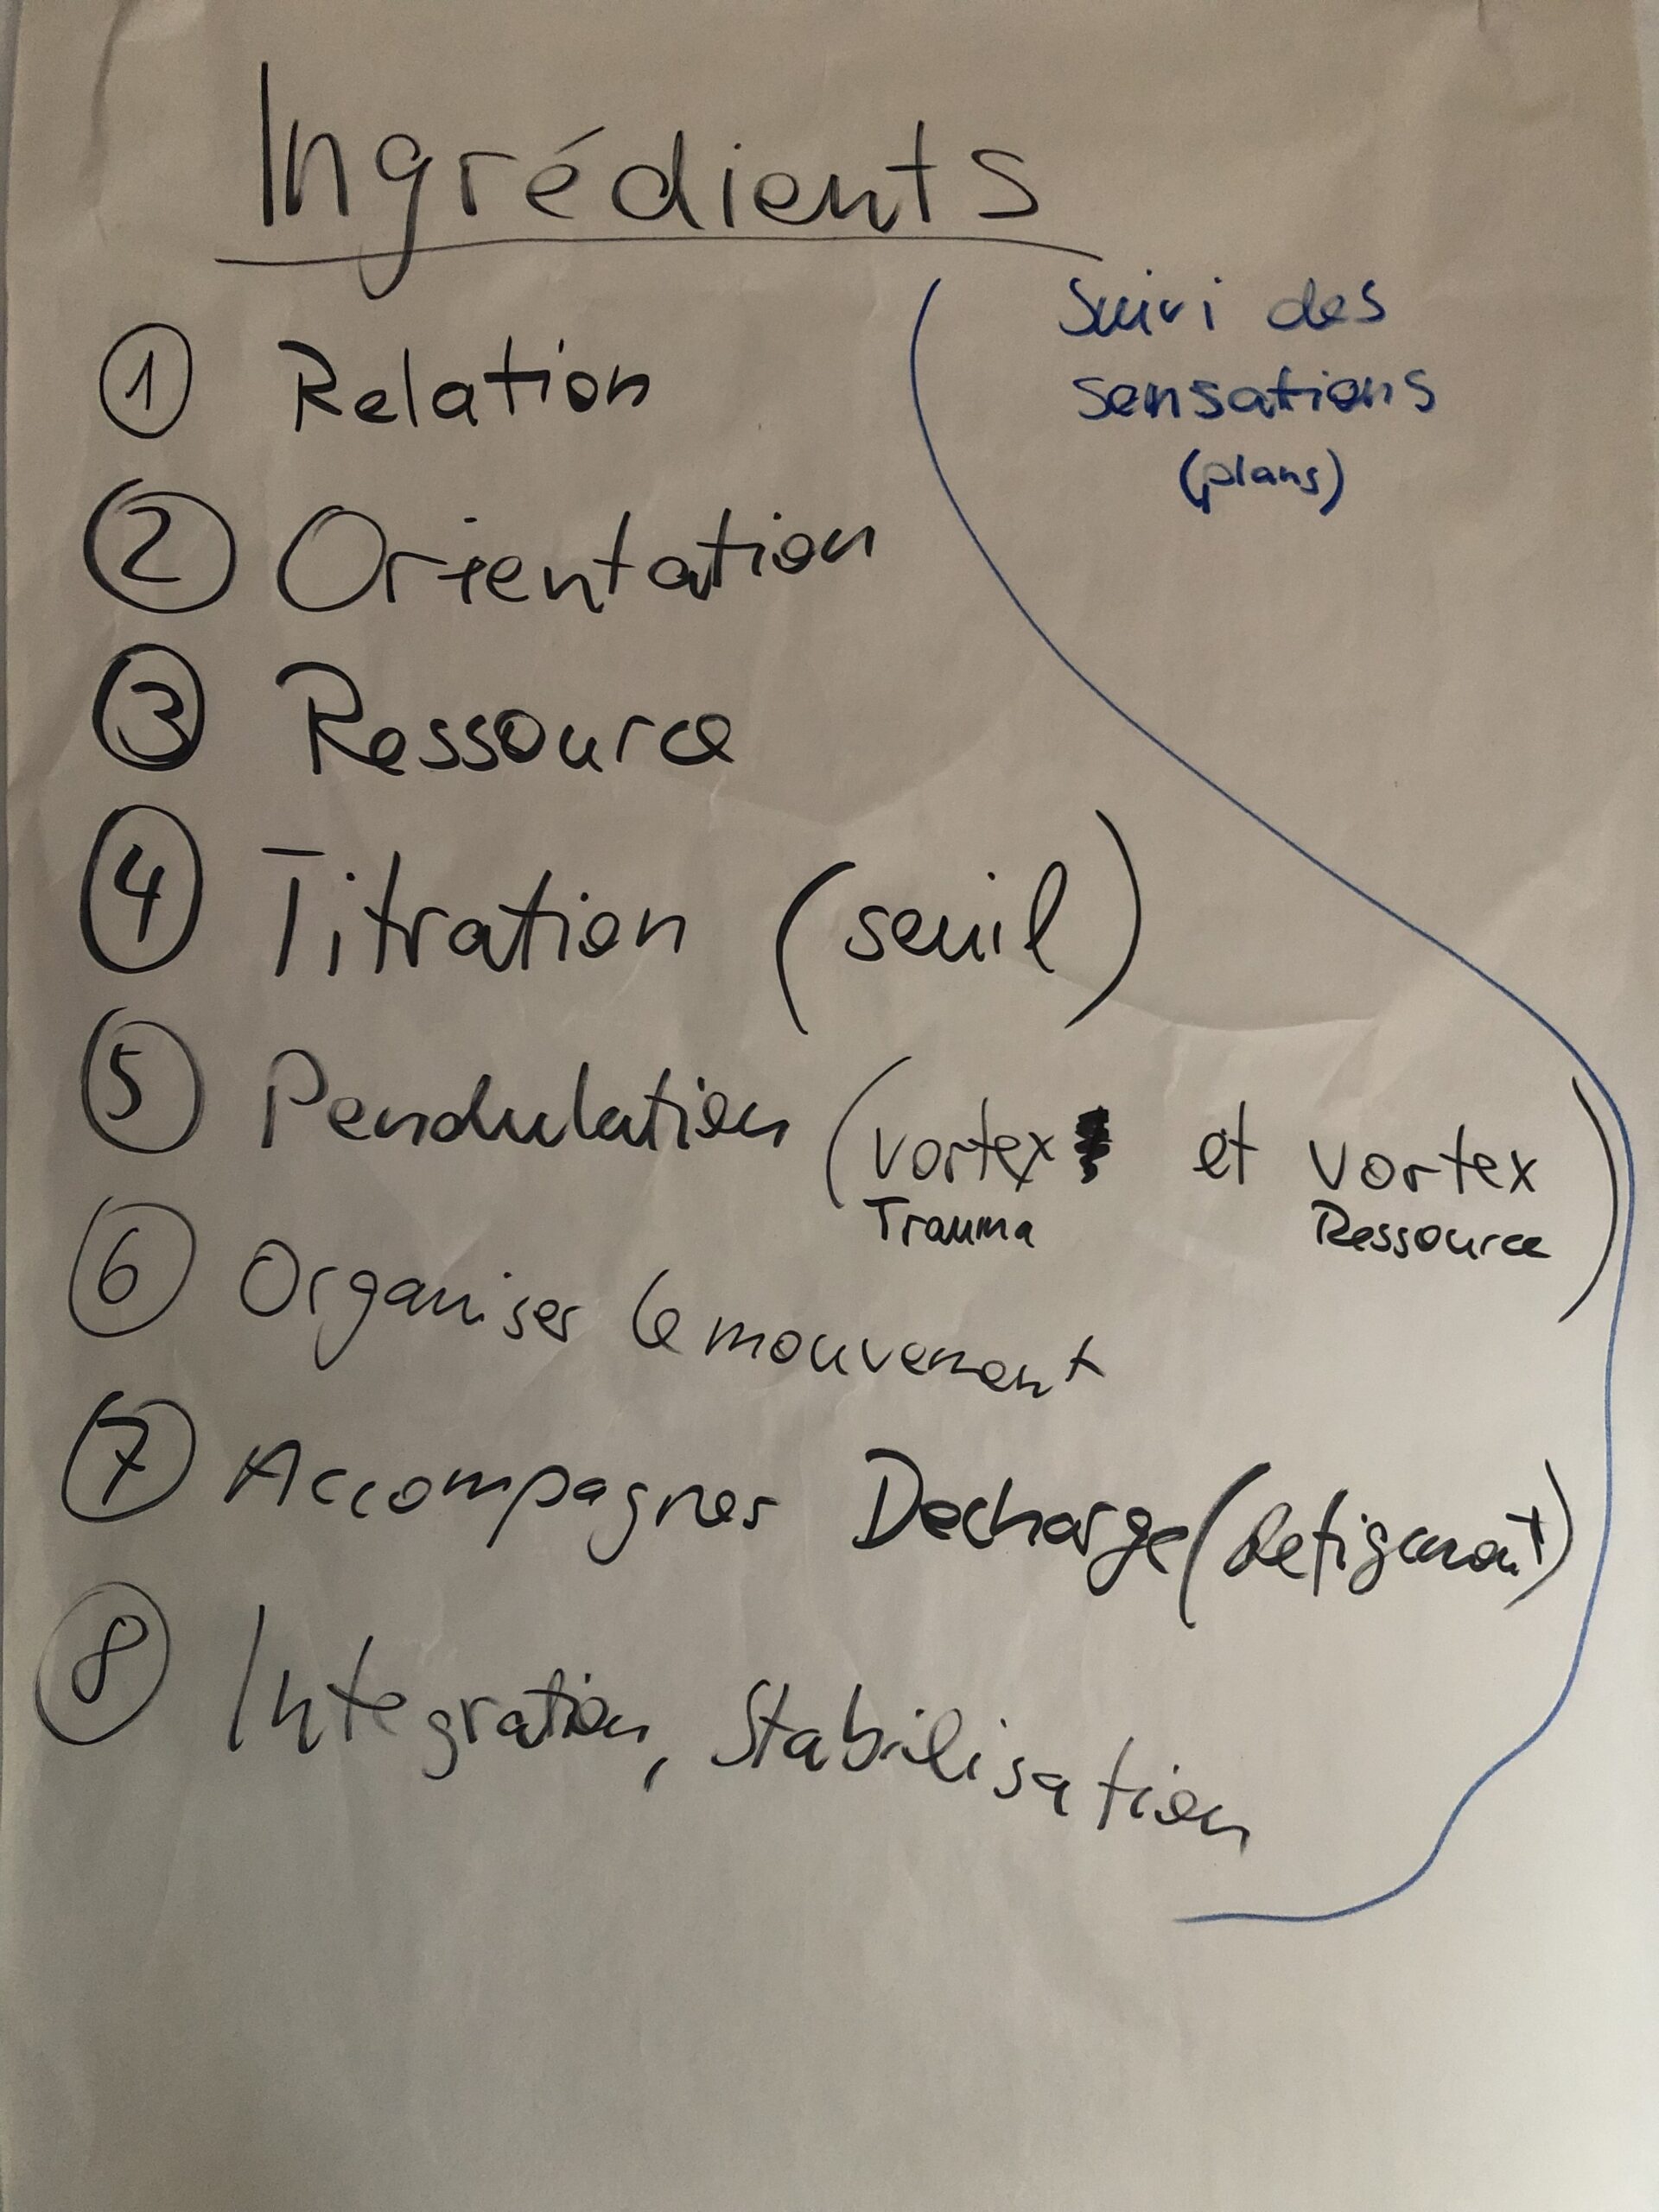 Ingrédients
Suivi des
sensations
(plans)
1 Relation
2 Orientation
3 Ressource
4 Titration (seuil)
5 Pendulation (vortex et vortex
Trauma Ressource)
6 Organiser le mouvement
7 Accompagner Decharge (defigement)
8 Integration, Stabilisation